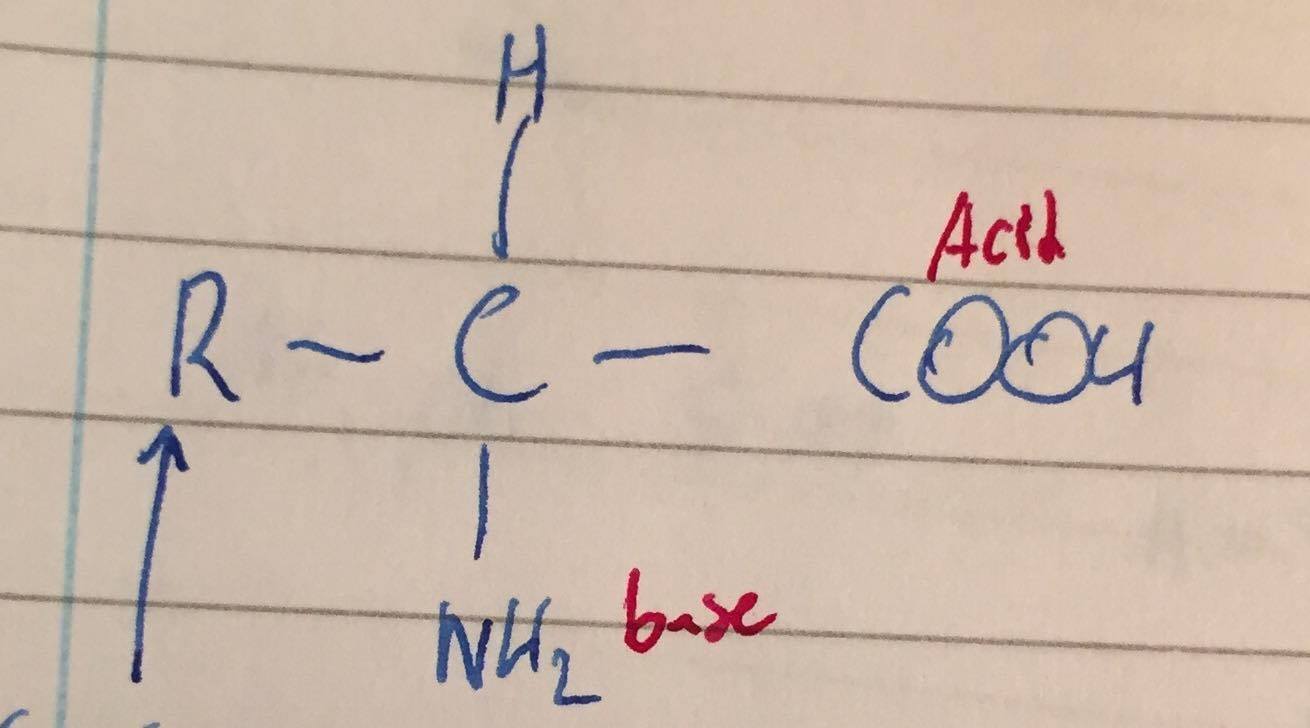 H
Acid
R - C - COOH
NH2 base